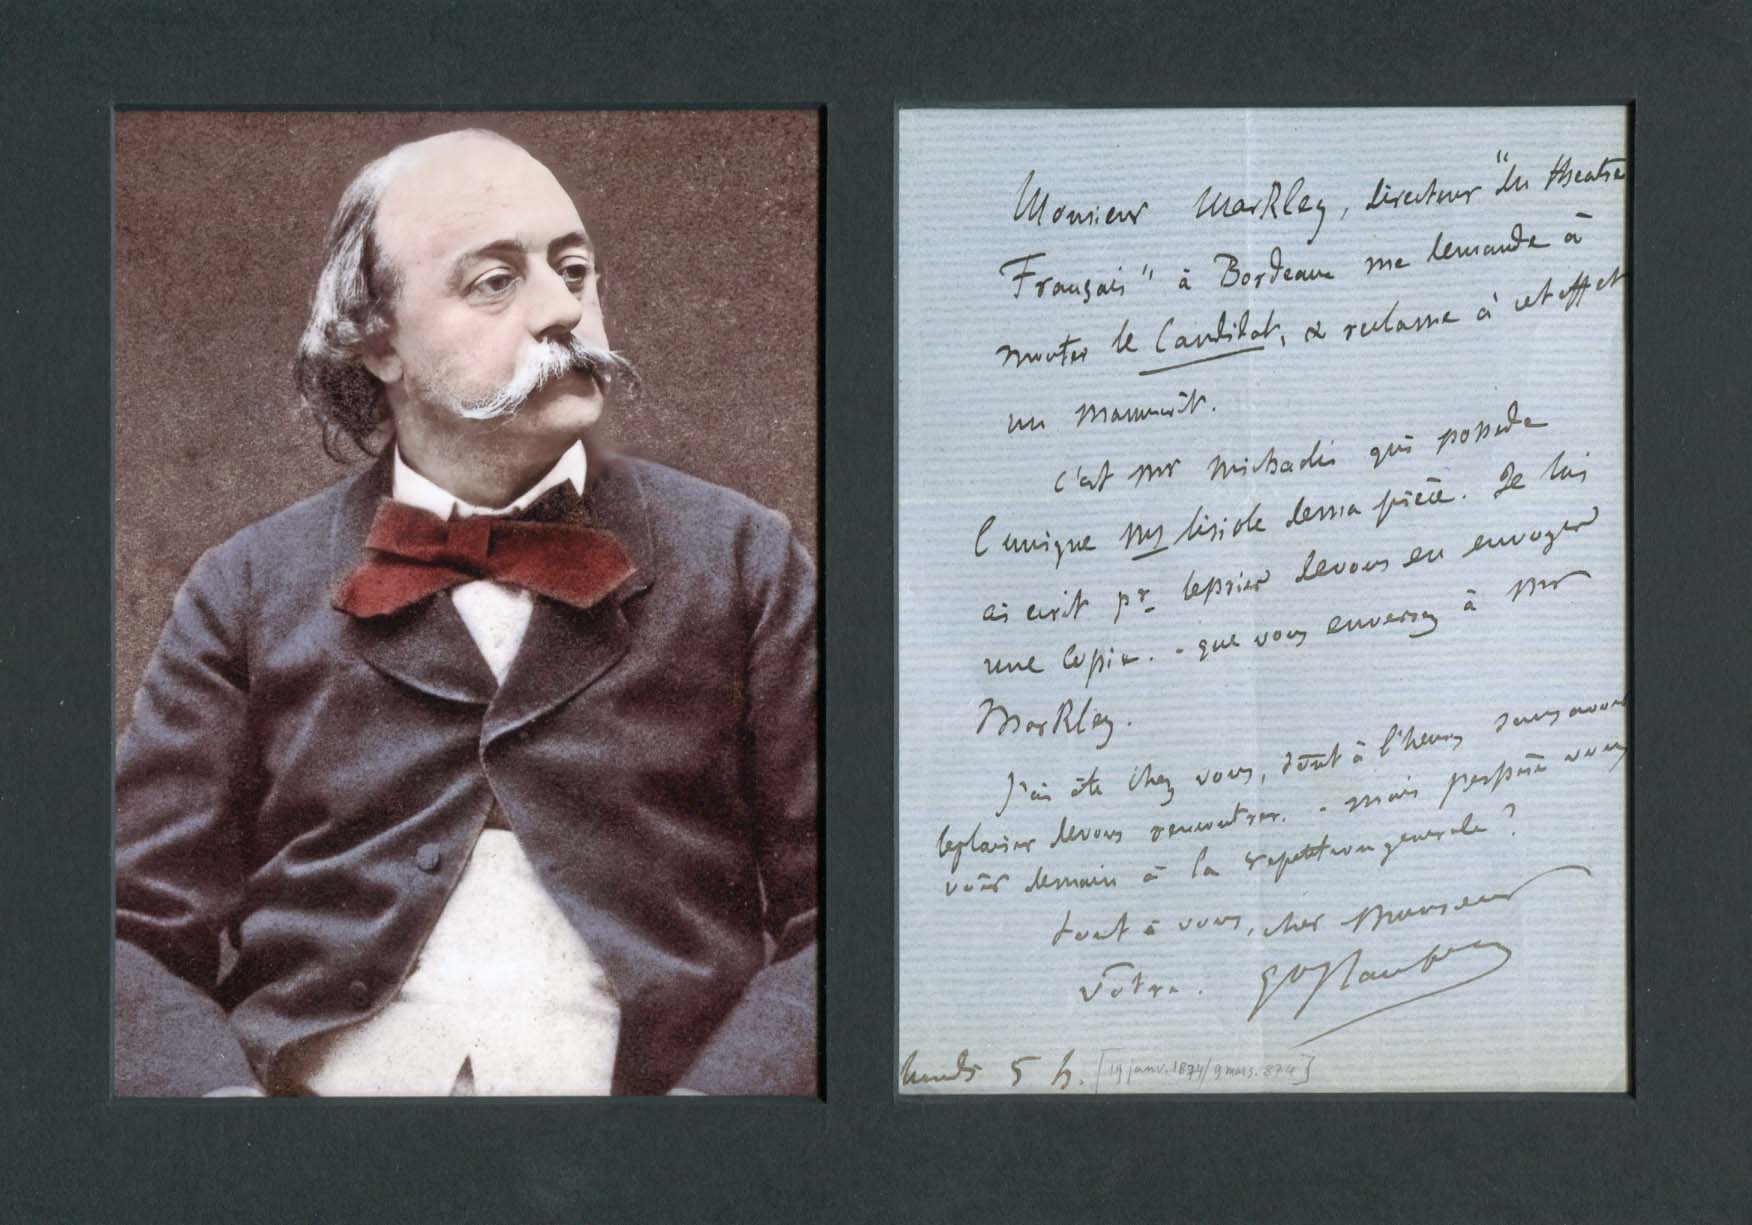 Monsieur Markley, directeur "du théatre
Français" à Bordeaux me demande à
monter le Candidat, & reclame à cet effet
un manuscrit.
C'est mr Michaelis qui possède
l'unique ms lisible dema pièce. Je lui
ai ecrit pr leprier devous en envoyer
une copie. - que vous enverrez à Mr
Markley.
J'ai été chez vous, tout à l'heure sans avoir
leplaisir devous rencontrer. - mais j'espère vous
voir demain à la repetition generale ?
tout à vous, cher Monsieur
Votre. Gve Flaubert
lundi 5 h. [19 janv. 1874/9 mars. 874]